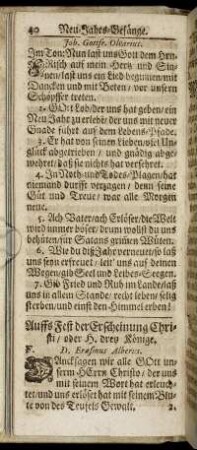 40 Neu-Jahrs-Gesänge.
Joh. Gottfr. Olearius.
Im Ton: Nun last uns Gott dem HErꝛ.
FRisch auf mein Hertz und Sin-
nen/ last uns ein Lied beginnen/ mit
Dancken und mit Beten/ vor unsern
Schöpffer treten.
2. GOtt Lob/ der uns hat geben/ ein
Neu Jahr zu erlebē/ der uns mit neuer
Gnade führt auf dem Lebens-Pfade.
3. Er hat von seinen Lieben/ viel Un-
glück abgetrieben/ und gnädig abge-
wehret/ daß sie nichts hat versehret.
4. In Noth und Todes-Plagen/ hat
niemand dürfft verzagen/ denn seine
Güt und Treue/ war alle Morgen
neue.
5. Ach Vater/ ach Erlöser/ die Welt
wird immer böser/ drum wollst du uns
behüten/ für Satans grimen Wüten.
6. Wie du diß Jahr verneuest/ so laß
uns seyn erfreuet/ leit' uns auf deinen
Wegen/ gib Seel und Leibes-Seegen.
7. Gib Fried und Ruh im Lande/ laß
uns in allem Stande/ recht leben/ selig
sterben/ und einst den Himmel erben!
Auffs Fest der Erscheinung Chri-
sti/ oder H. drey Könige.
F. D. Erasmus Alberus.
DAncksagen wir alle GOtt un-
serm HErrn Christo/ der uns
mit seinem Wort hat erleuch-
tet/ und uns erlöset hat mit seinem Blu-
te von des Teufels Gewalt.
2.